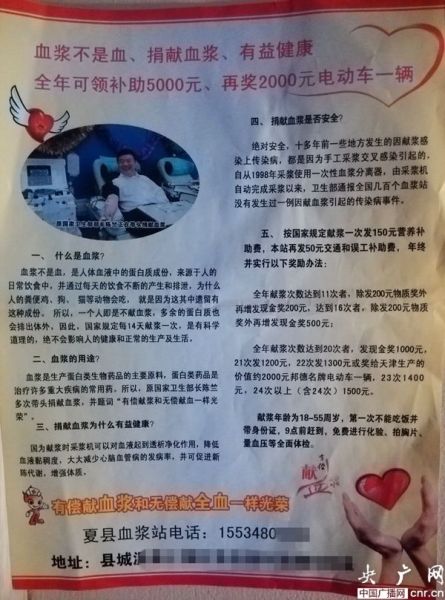 血浆不是血、捐献血浆、有益健康
全年可领补助5000元、再奖2000元电动车一辆
原国家卫生部部长陈竺正在带头捐献血浆
一、 什么是血浆?
血浆不是血，是人体血液中的蛋白质成份，来源于人的
日常饮食中，并通过每天的饮食不断的产生和排泄，为什么
人的粪便鸡、狗、 猫等动物会吃， 就是因为这其中遗留有
这种成份。 所以，一个人即是不献血浆，多余的蛋白质也
会排出体外，因此，国家规定每14天献浆一次，是有科学
道理的，绝不会影响人的健康和正常的生产及生活。
二、血浆的用途?
血浆是生产蛋白类生物药品的主要原料，蛋白类药品是
治疗许多重大疾病的常用药。所以，原国家卫生部长陈竺
多次带头捐献血浆，并题词“有偿献浆和无偿献血一样光
荣”。
三、捐献血浆为什么有益健康?
因为献浆时采浆机可以对血液起到透析净化作用，降低
血液黏稠度，大大减少心脑血管病的发病率，并可促进新
陈代谢，增强体质。
四、 捐献血浆是否安全?
绝对安全，十多年前一些地方发生的因献浆感
染上传染病，都是因为手工采浆交叉感染引起的，
自从1998年采浆使用一次性血浆分离器，由采浆机
自动完成采浆以来，卫生部通报全国几百个血浆站
没有发生过一例因献血浆引起的传染病事件。
五、 按国家规定献浆一次发150元营养补
助费，本站再发50元交通和误工补助费， 年终
并实行以下奖励办法:
全年献浆次数达到11次者，除发200元物质奖外
再增发现金奖200元，达到16次者，除发200元物质
奖外再增发现金奖500元;
全年献浆次数达到20次者，发现金奖1000元，
21次发1200元，22次发1300元或奖给天津生产的
价值约2000元邦德名牌电动车一辆，23次1400
元，24次以上（含24次）1500元。
献浆年龄为18-55周岁，第一次不能吃饭并
带身份证，9点前赶到，免费进行化验、拍胸片、
量血压等全面体检。
有偿献血浆和无偿献全血一样光荣
夏县血浆站电话: 1553480
地址: 县城
央广网
中国广播网 cnr.cn